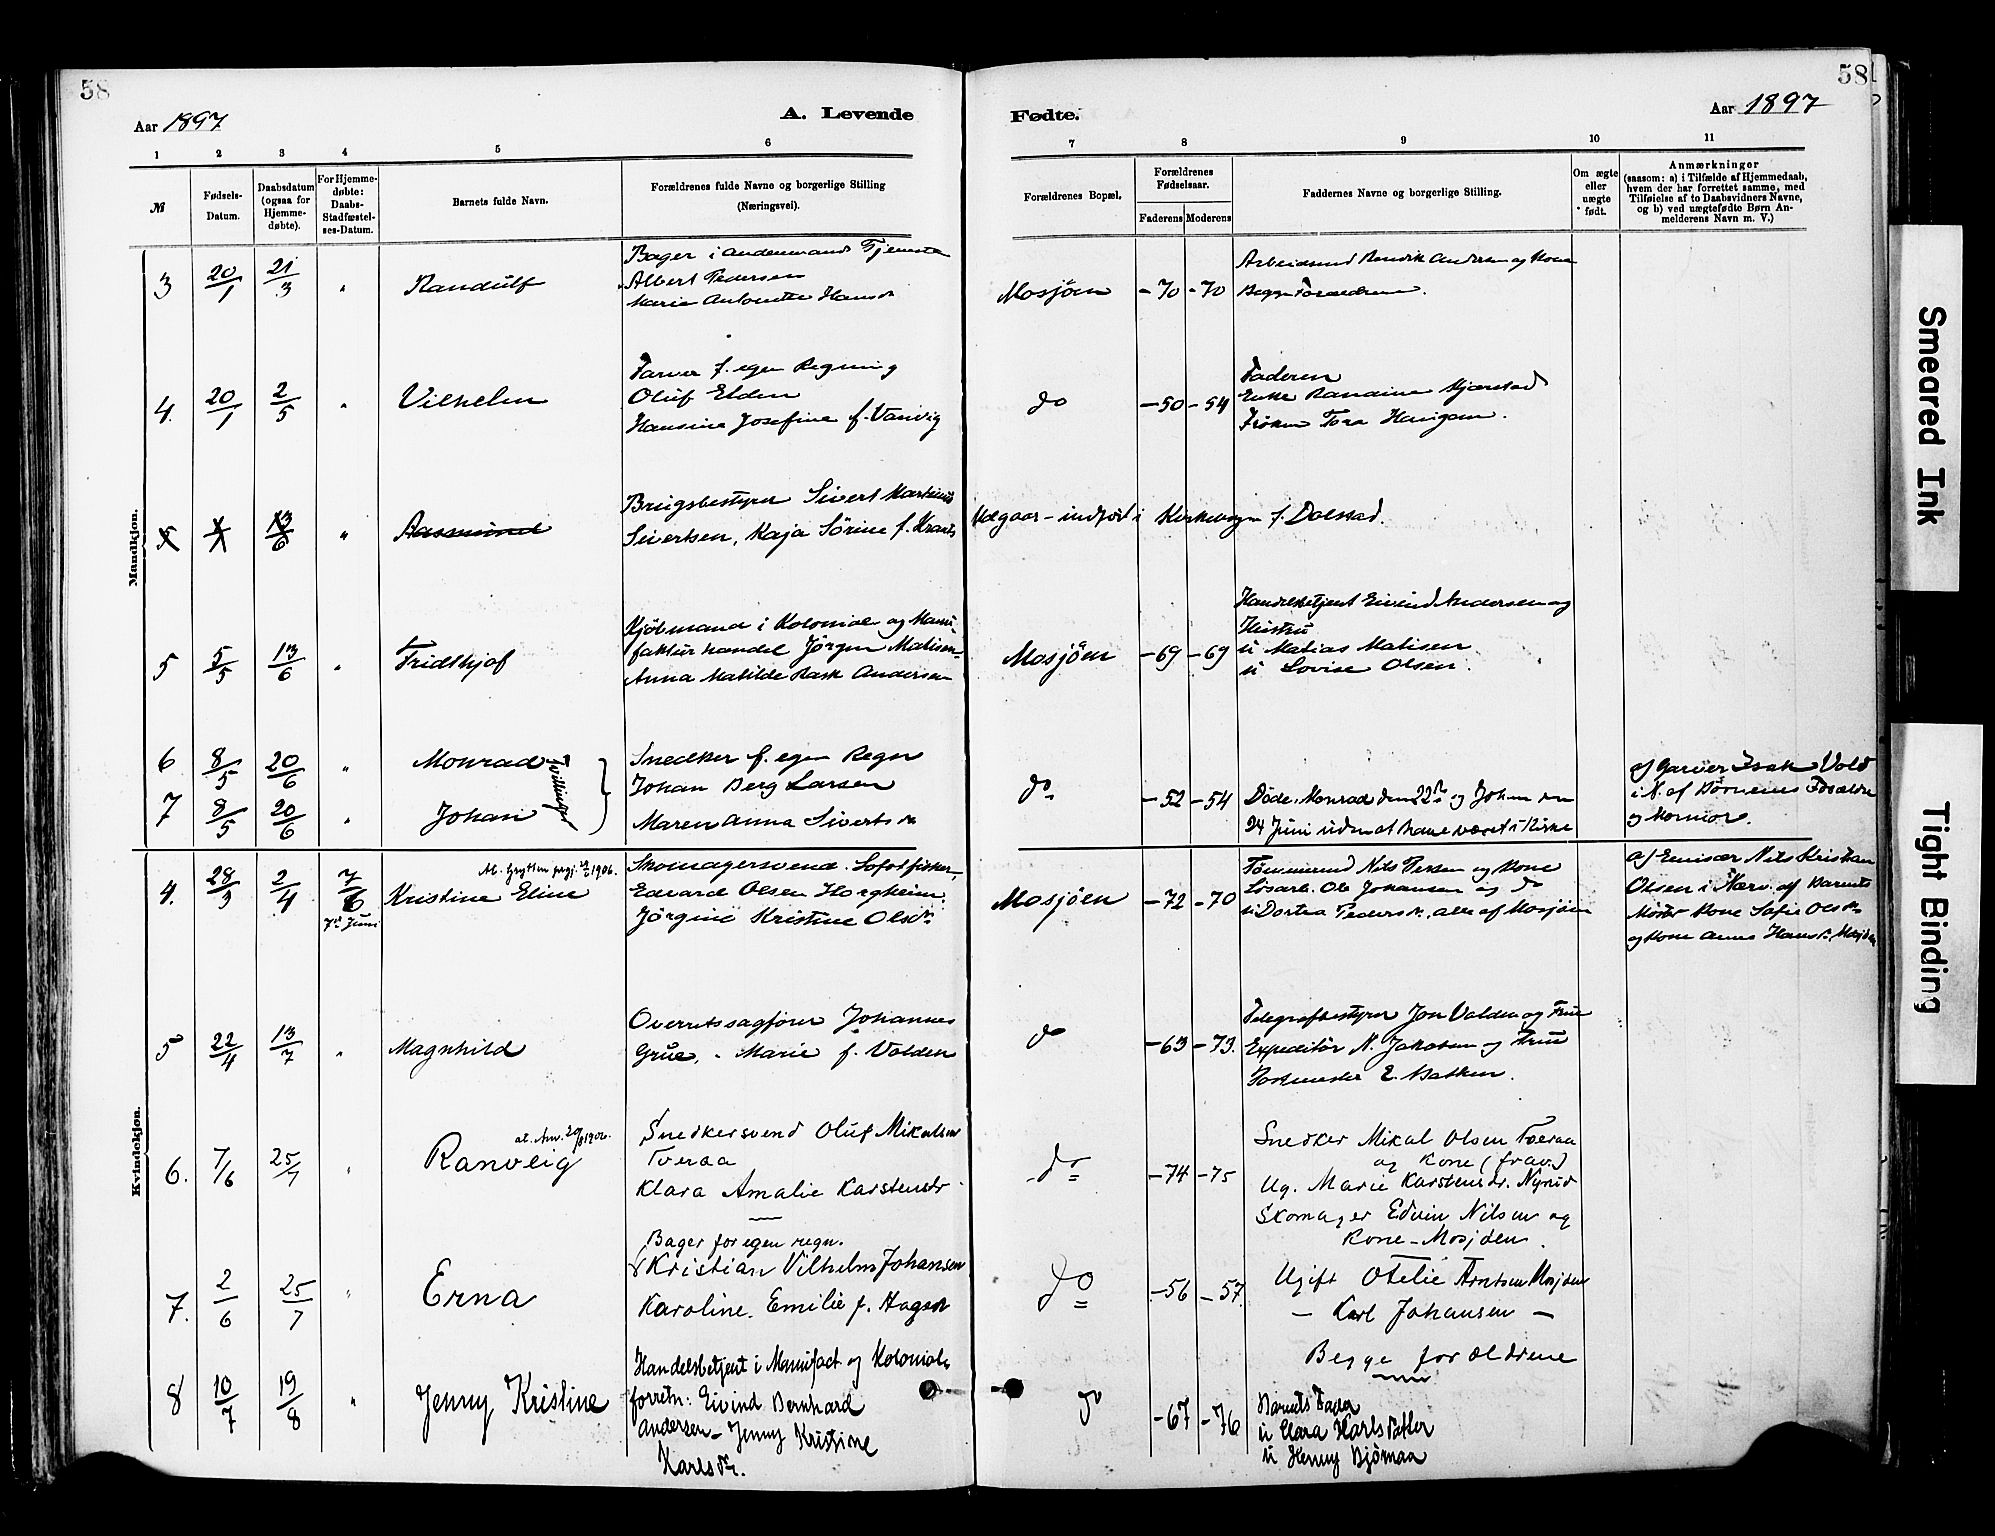 58
58
Aar 1897
A. Levende
Fødte.
Aar 1897
1 2 3 4 5 6 7 8 9 10 11
№
Fødsels-
Datum.
Daabsdatum
(ogsaa for
Hjemme-
døbte).
For Hjemme-
døbte:
Daabs-
Stadfæstel-
ses-Datum.
Barnets fulde Navn.
Forældrenes fulde Navne og borgerlige Stilling
(Næringsvei).
Forældrenes Bopæl.
Forældrenes
Fødselsaar.
Faderens Moderens
Faddernes Navne og borgerlige Stilling.
Om ægte
eller
uægte
født.
Anmærkninger
(saasom: a) i Tilfælde af Hjemmedaab,
hvem der har forrettet samme, med
Tilføielse af to Daabsvidners Navne,
og b) ved uægtefødte Børn An-
melderens Navn m. V.)
Mandkjøn.
3 20/1 21/3 " Randulf
Bager i andenmands Tjeneste
Albert Pedersen
Marie Antonette Hansdr
Mosjøen -70 -70
Arbeidsmd Andersen og Kone
Begge Forældrene.
4. 20/1 2/5 " Vilhelm
Farver f. egen Regning
Oluf Elden
Hansine Josefine f. Vanvig
do -50 -54
Faderen
Enke Kjærstad
Frøken Tora
5 13/6 " Aasmund
Brugsbestyrer Sivert Martinus
Sivertsen, Kaja Sørine f.
indført i Kirkebogen f. Dolstad.
5 5/5 13/6 " Fridthjof
Kjøbmand i Kolonial og Manu-
faktur handel Jørgen Matisen
Anna Matilde Rask Andersen
Mosjøen -69 -69
Handelsbetjent Eivind Andersen og
Hustru
u Matias Matisen
u Lovise Olsen.
6 8/5 20/6 " Monrad
7 8/5 20/6 " Johan
Tvillinger
Snedker f. egen Regn
Johan Berg Larsen
Maren Anna Sivertsdr
do -52 -54
Døde: Monrad den 22de og Johan den
24 Juni uden at have været i Kirke
af Garver Isak Vold
i N. af Børnenes Forældre
og Mormor.
Kvindekjøn.
4. 28/3 2/4 7/6 Kristine Eline
7de Juni
1906.
Skomagersvend. Lofotfisker
Edvard Olsen Horgheim.
Jørgine Kristine Olsdr
Mosjøen -72 -70
Tømmermd Nils og Kone
Løsarb. Ole Johansen og do
u Dortea Pedersdr, alle af Mosjøen
af Emisær Nils Kristian
Olsen i Nærv. af Barnets
Moster Kone Sofie Olsdr
og Kone Anne Hansdr. Mosjøen
5 22/4 13/7 " Magnhild
Overretssagfører Johannes
Grue, - Marie f. Volden
do -63 -73.
Telegrafbestyrer Jon Volden og Frue
Expeditør N. Jakobsen og Frue
Postmester E.
6. 7/6 25/7 " Ranveig
Snedkersvend Oluf Mikalsen
Tveraa
Klara Amalie Karstensdr
do -74 -75
Snedker Mikal Olsen Tveraa
og Kone (frav.)
Ug. Marie Karstensdr. Nyrud
Skomager Edvin Nilsen og
Kone - Mosjøen.
7. 2/6 25/7 " Erna
Bager for egen regn.
Kristian Vilhelm Johansen
Karoline Emilie f. Hagsdr
do -56 -57.
Ugift Otelie Arntsen Mosjøen
- Karl Johansen -
Begge forældrene
8 10/7 19/8 " Jenny Kristine
Handelsbetjent i Manufact og Kolonial-
forretn: Eivind Bernhard
Andersen - Jenny Kristine
Karlsdr.
do -67 -76
Barnets Fader
u Clara Karlsdatter
u Henny Bjørnaa
Smeared Ink
Tight Binding